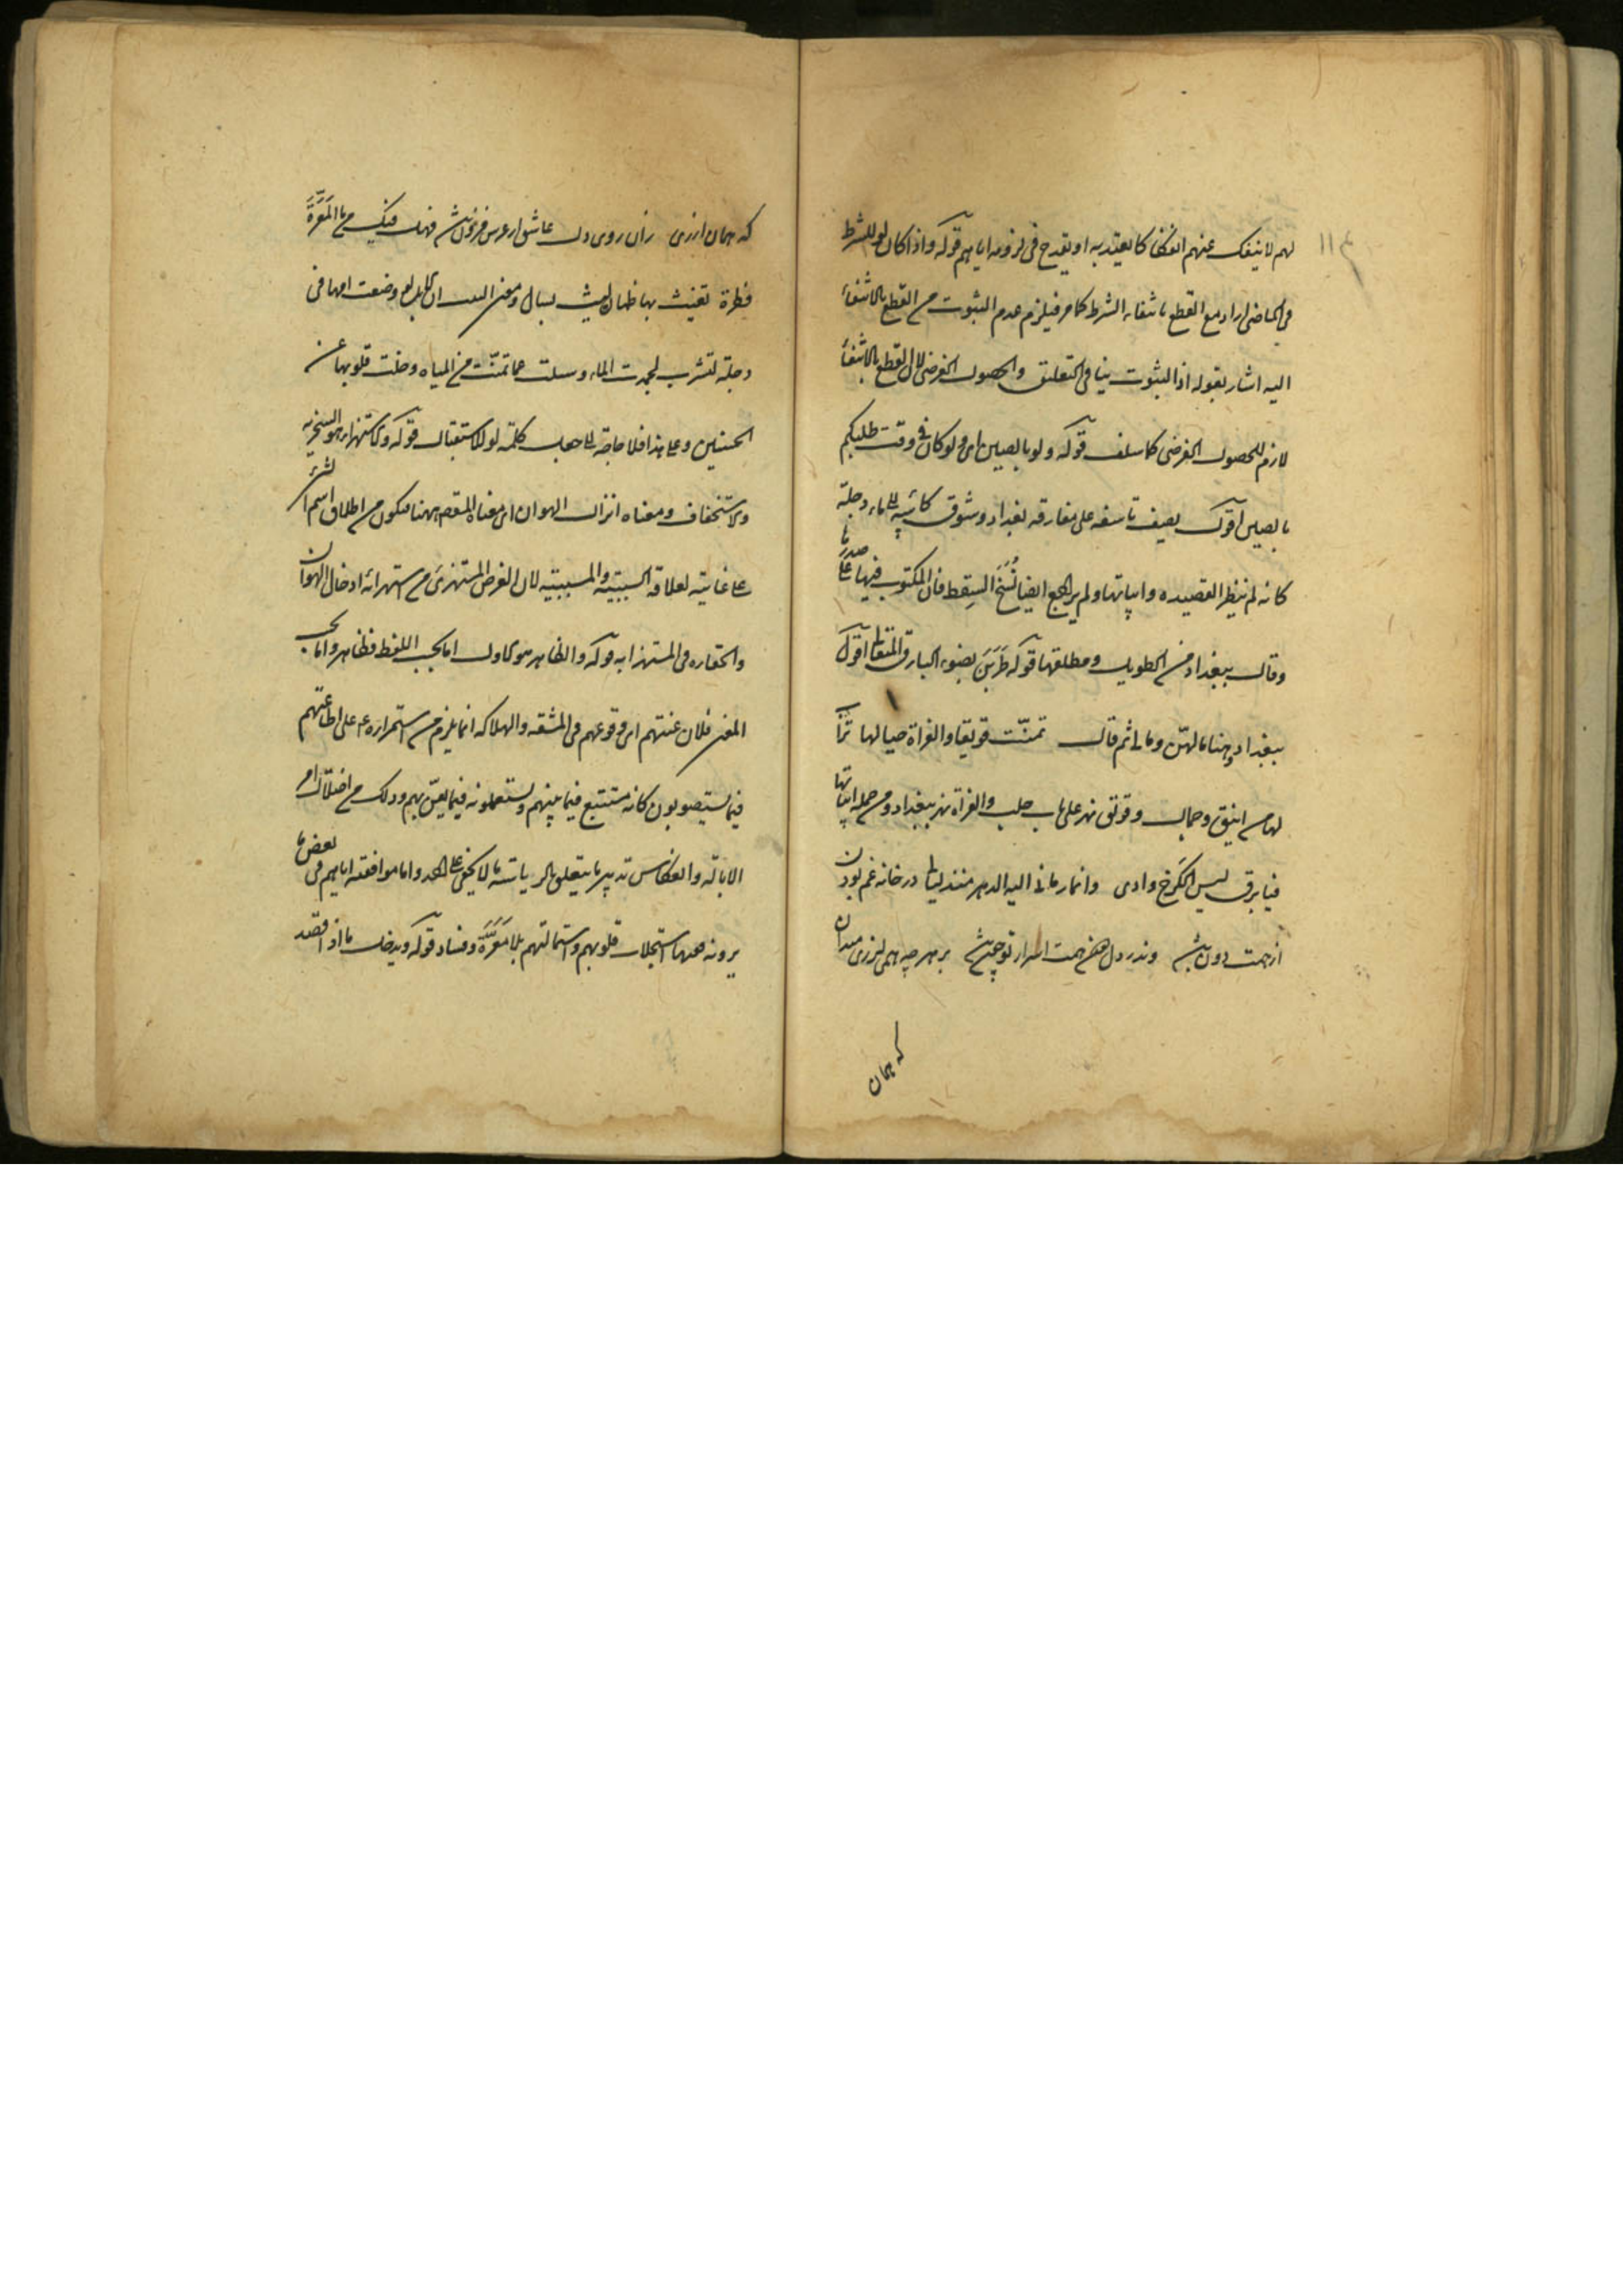 ١١٤
لهم لا ينفك عنهم انفكاكا يعتد به او يقدح في لزومه اياهم قوله واذا كان لو للشرط
في الماضى اراد مع القطع بانتفاء الشرط كما مر فيلزم عدم الثبوت من القطع بالانتفاء
اليه اشار بقوله اذ الثبوت ينافى التعليق والحصول الفرضى لان القطع بالانتفاء
لازم للحصول الفرضى كما سلف قوله ولو بالصين اى ولو كان في وقت طلبكم
بالصين اقول يصف تاسفه على مفارقه بغداد وشوق ركائبه الى ماء دجلة
كانه لم ينظر القصيده وابياتها ولم يراجع ايضا نُسَخَ السِقط فان المكتوب فيها على صدرها
وقال ببغداد من الطويل ومطلعها قوله طَرَبنَ بضوء البارق المتعالى اقول
ببغداد وهنا ما لهن ومالى ثم قال تمنّت قويقا والفراة حيالها تراب
لها من اينق وجمال وقويق نهر على باب حلب والفراة نهر ببغداد ومن جمله ابياتها
فيا برق ليس الكرخ دارى وانما رمانى اليه الدهر منذ ليال در خانه غم بودن
از همت دون باشد وندر دل همت اسرار تو چون باشد بر هر چه همى لرزى ميدان
كه همان
كه همان ارزى زان روى دل عاشق از عرش فزون باشد فهل فيك من ماء المَعَرَّةَ
قطرة تغيث بها ظمآن ليس بسال ومعنى البيت ان الابل لو وضعت افمها فى
دجلة لتشرب لجمدت الماء وسلت عما تمنّت من المياه وخلت قلوبها عن
الحنين وعلى هذا فلا حاجة الى جعل كلمة لو للاستقبال قوله والاستهزاء هو السخرية
والاستخفاف ومعناه انزال الهوان اى معناه المقصود ههنا فيكون من اطلاق اسم الشىء
على غايته لعلاقة السببية والمسببية لان الغرض المستهزئ من استهزائه ادخال الهوان
والحقاره فى المستهزا به قوله والظاهر هو الاول اما بحسب اللفظ فظاهر واما بحسب
المعنى فلان عنتهم اى وقوعهم فى المشقه والهلاكه انما يلزم من استمراره ع م على اطاعتهم
فيما يستصوبون كانه مستتبع فيما بينهم ويستعملونه فيما يعنّ بهم وذلك من اختلال امر
الايالة وانعكاس تدبير ما يتعلق بالرياسة ما لا يخفى على احد واما موافقته اياهم فى بعض ما
يرونه ففيها استجلاب قلوبهم واستمالتهم بلا مَعَرَّة وفساد قوله ويدخل ما اذا قصد